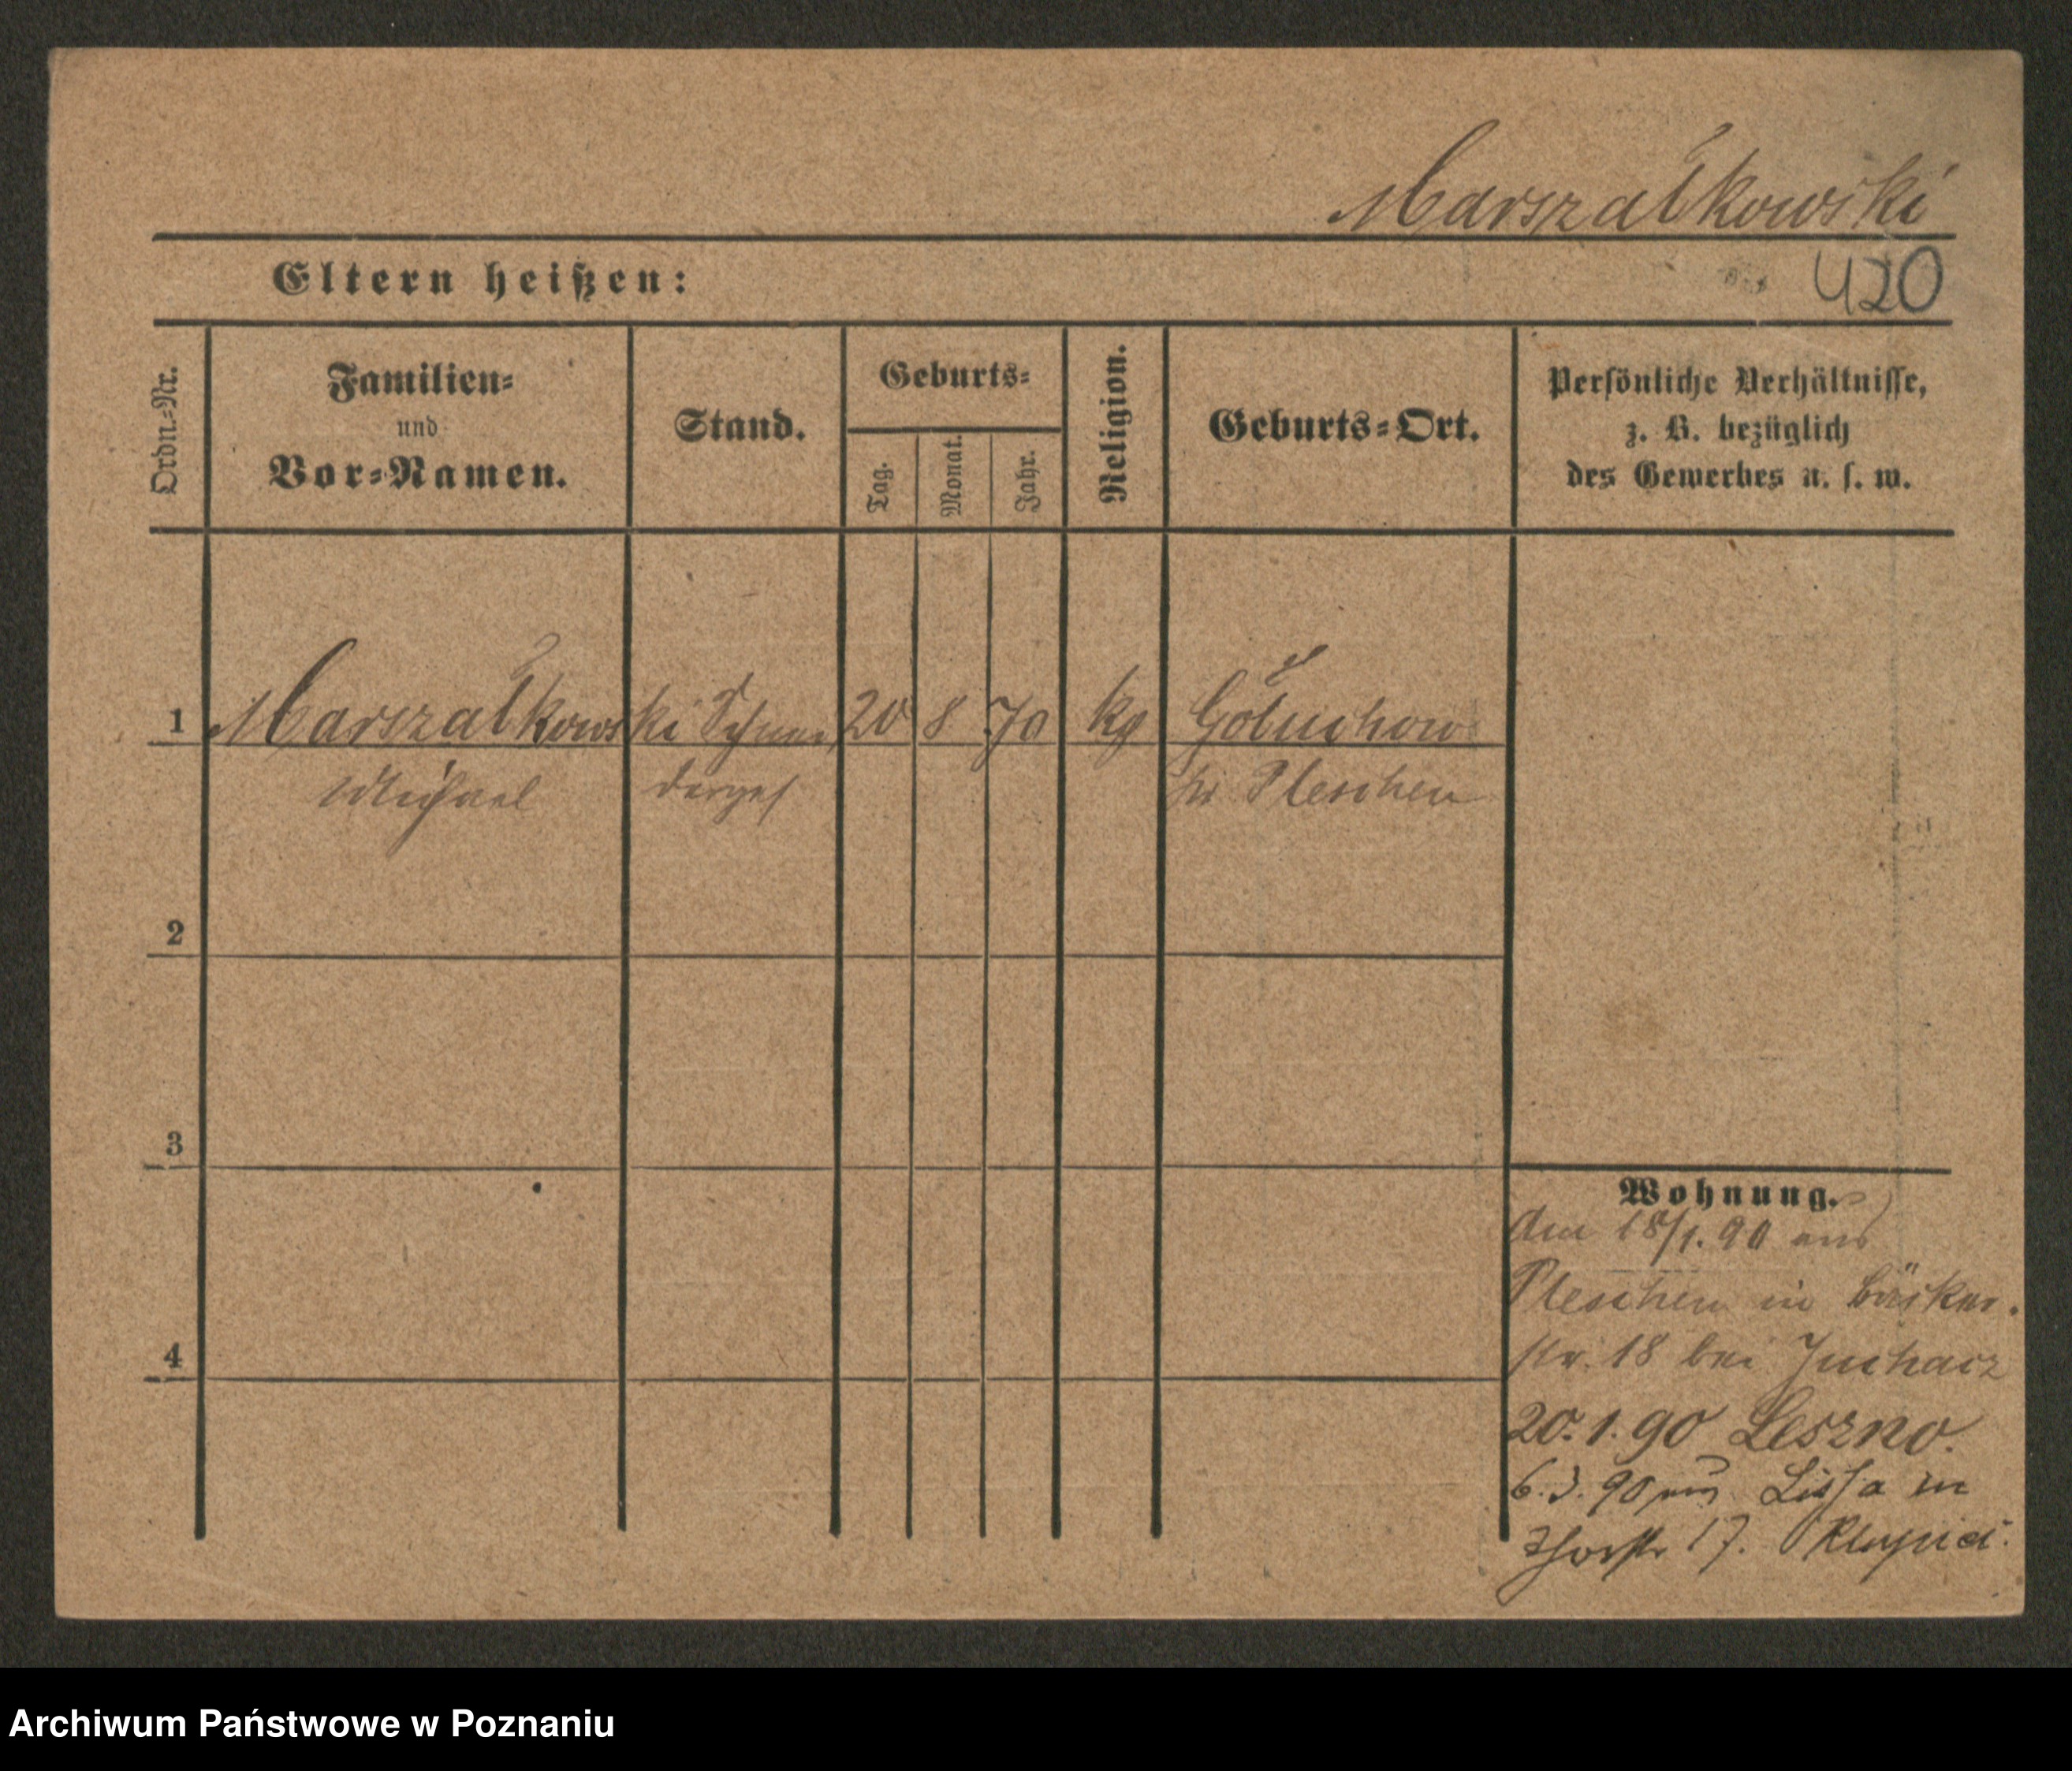 Marszałkowski
Eltern heißen:
420
Ordn.-Nr.
Familien-
und
Vor-Namen.
Stand.
Geburts-
Tag.
Monat.
Jahr.
Religion.
Geburts-Ort.
Persönliche Verhältnisse,
z. B. bezüglich
des Gewerbes u. s. w.
1 Marszałkowski Schnei 20 8 70 kg Gołuchow
Michael derges Kr Pleschen
2
3
4
Wohnung.
Am 18/1. 90 aus
Pleschen in Bäcker.
str. 18 bei Juchacz
20.1.90 Leszno.
6.3.90 aus Lissa in
Thorstr 17.
Archiwum Państwowe w Poznaniu